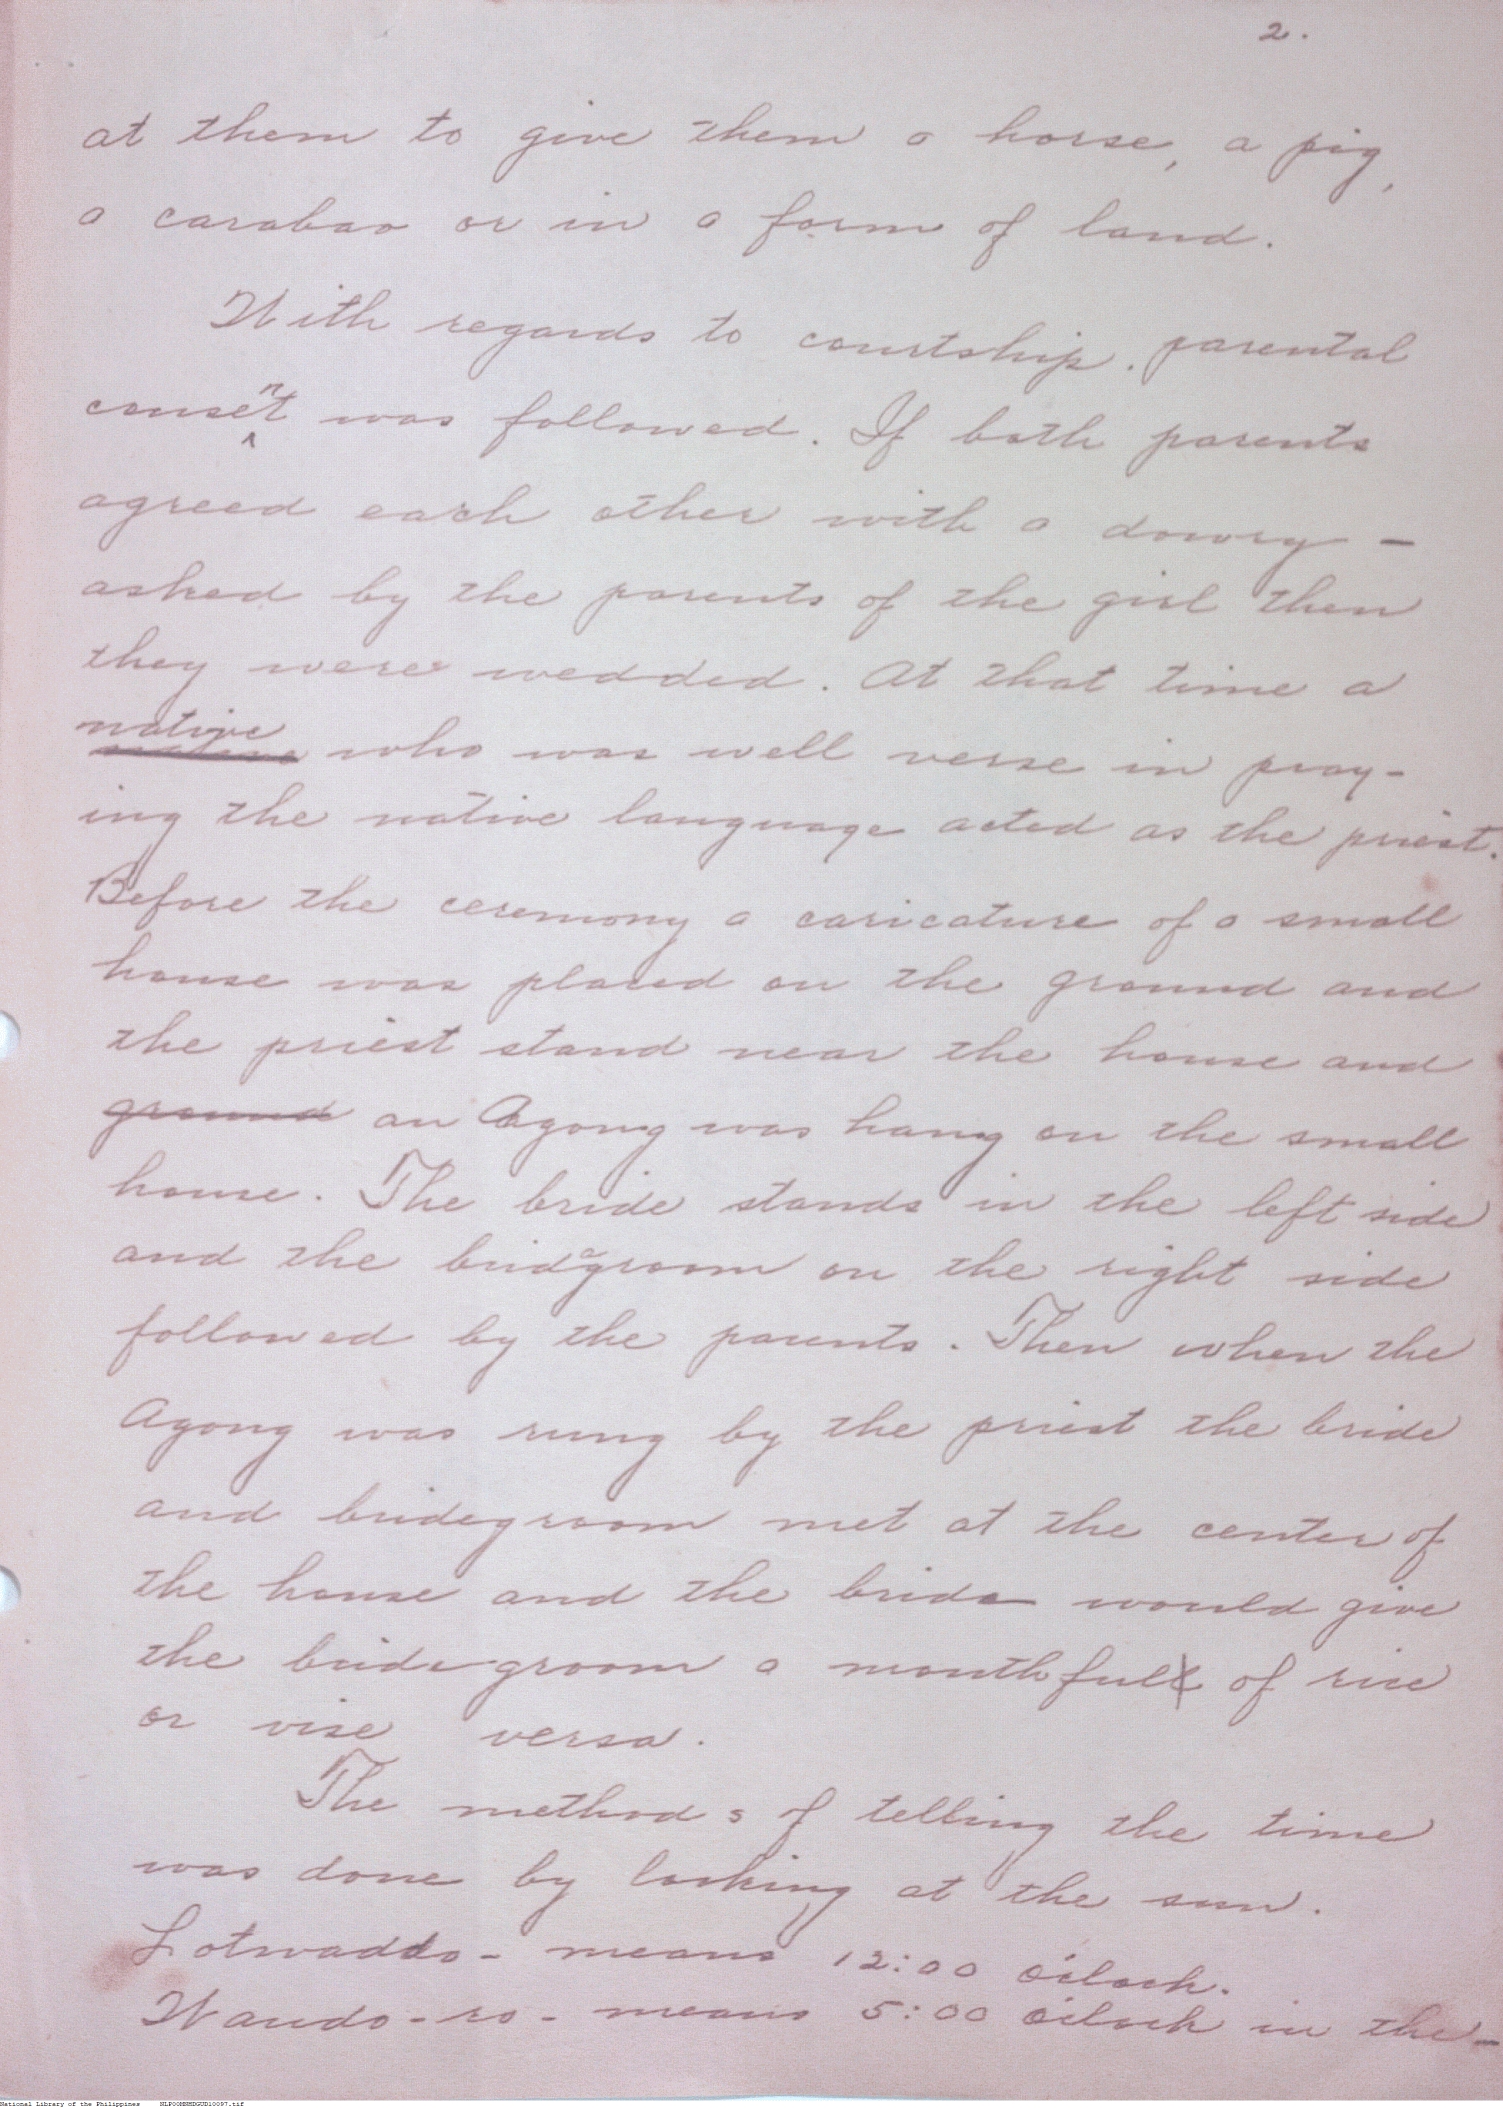 2.
at them to give them a horse, a pig,
a carabao or in a form of land.
With regards to courtship. parental
consent was followed. If both parents
agreed each other with a dowry -
asked by the parents of the girl then
they were wedded. At that time a
native who was well verse in pray-
ing the native language acted as the priest.
Before the ceremony a caricature of a small
house was placed on the ground and
the priest stand near the house and
ground an Agong was hang on the small
house. The bride stands in the left side
and the bridegroom on the right side
followed by the parents. Then when the
Agong was rung by the priest the bride
and bridegroom met at the center of
the house and the bride would give
the bridegroom a mouthful of rice
or vise versa.
The methods of telling the time
was done by looking at the sun.
Lotwaddo - means 12:00 o'clock.
Wando-ro - means 5:00 o'clock in the -
National Library of the Philippines NLPOOMNHDGUD10097.tif